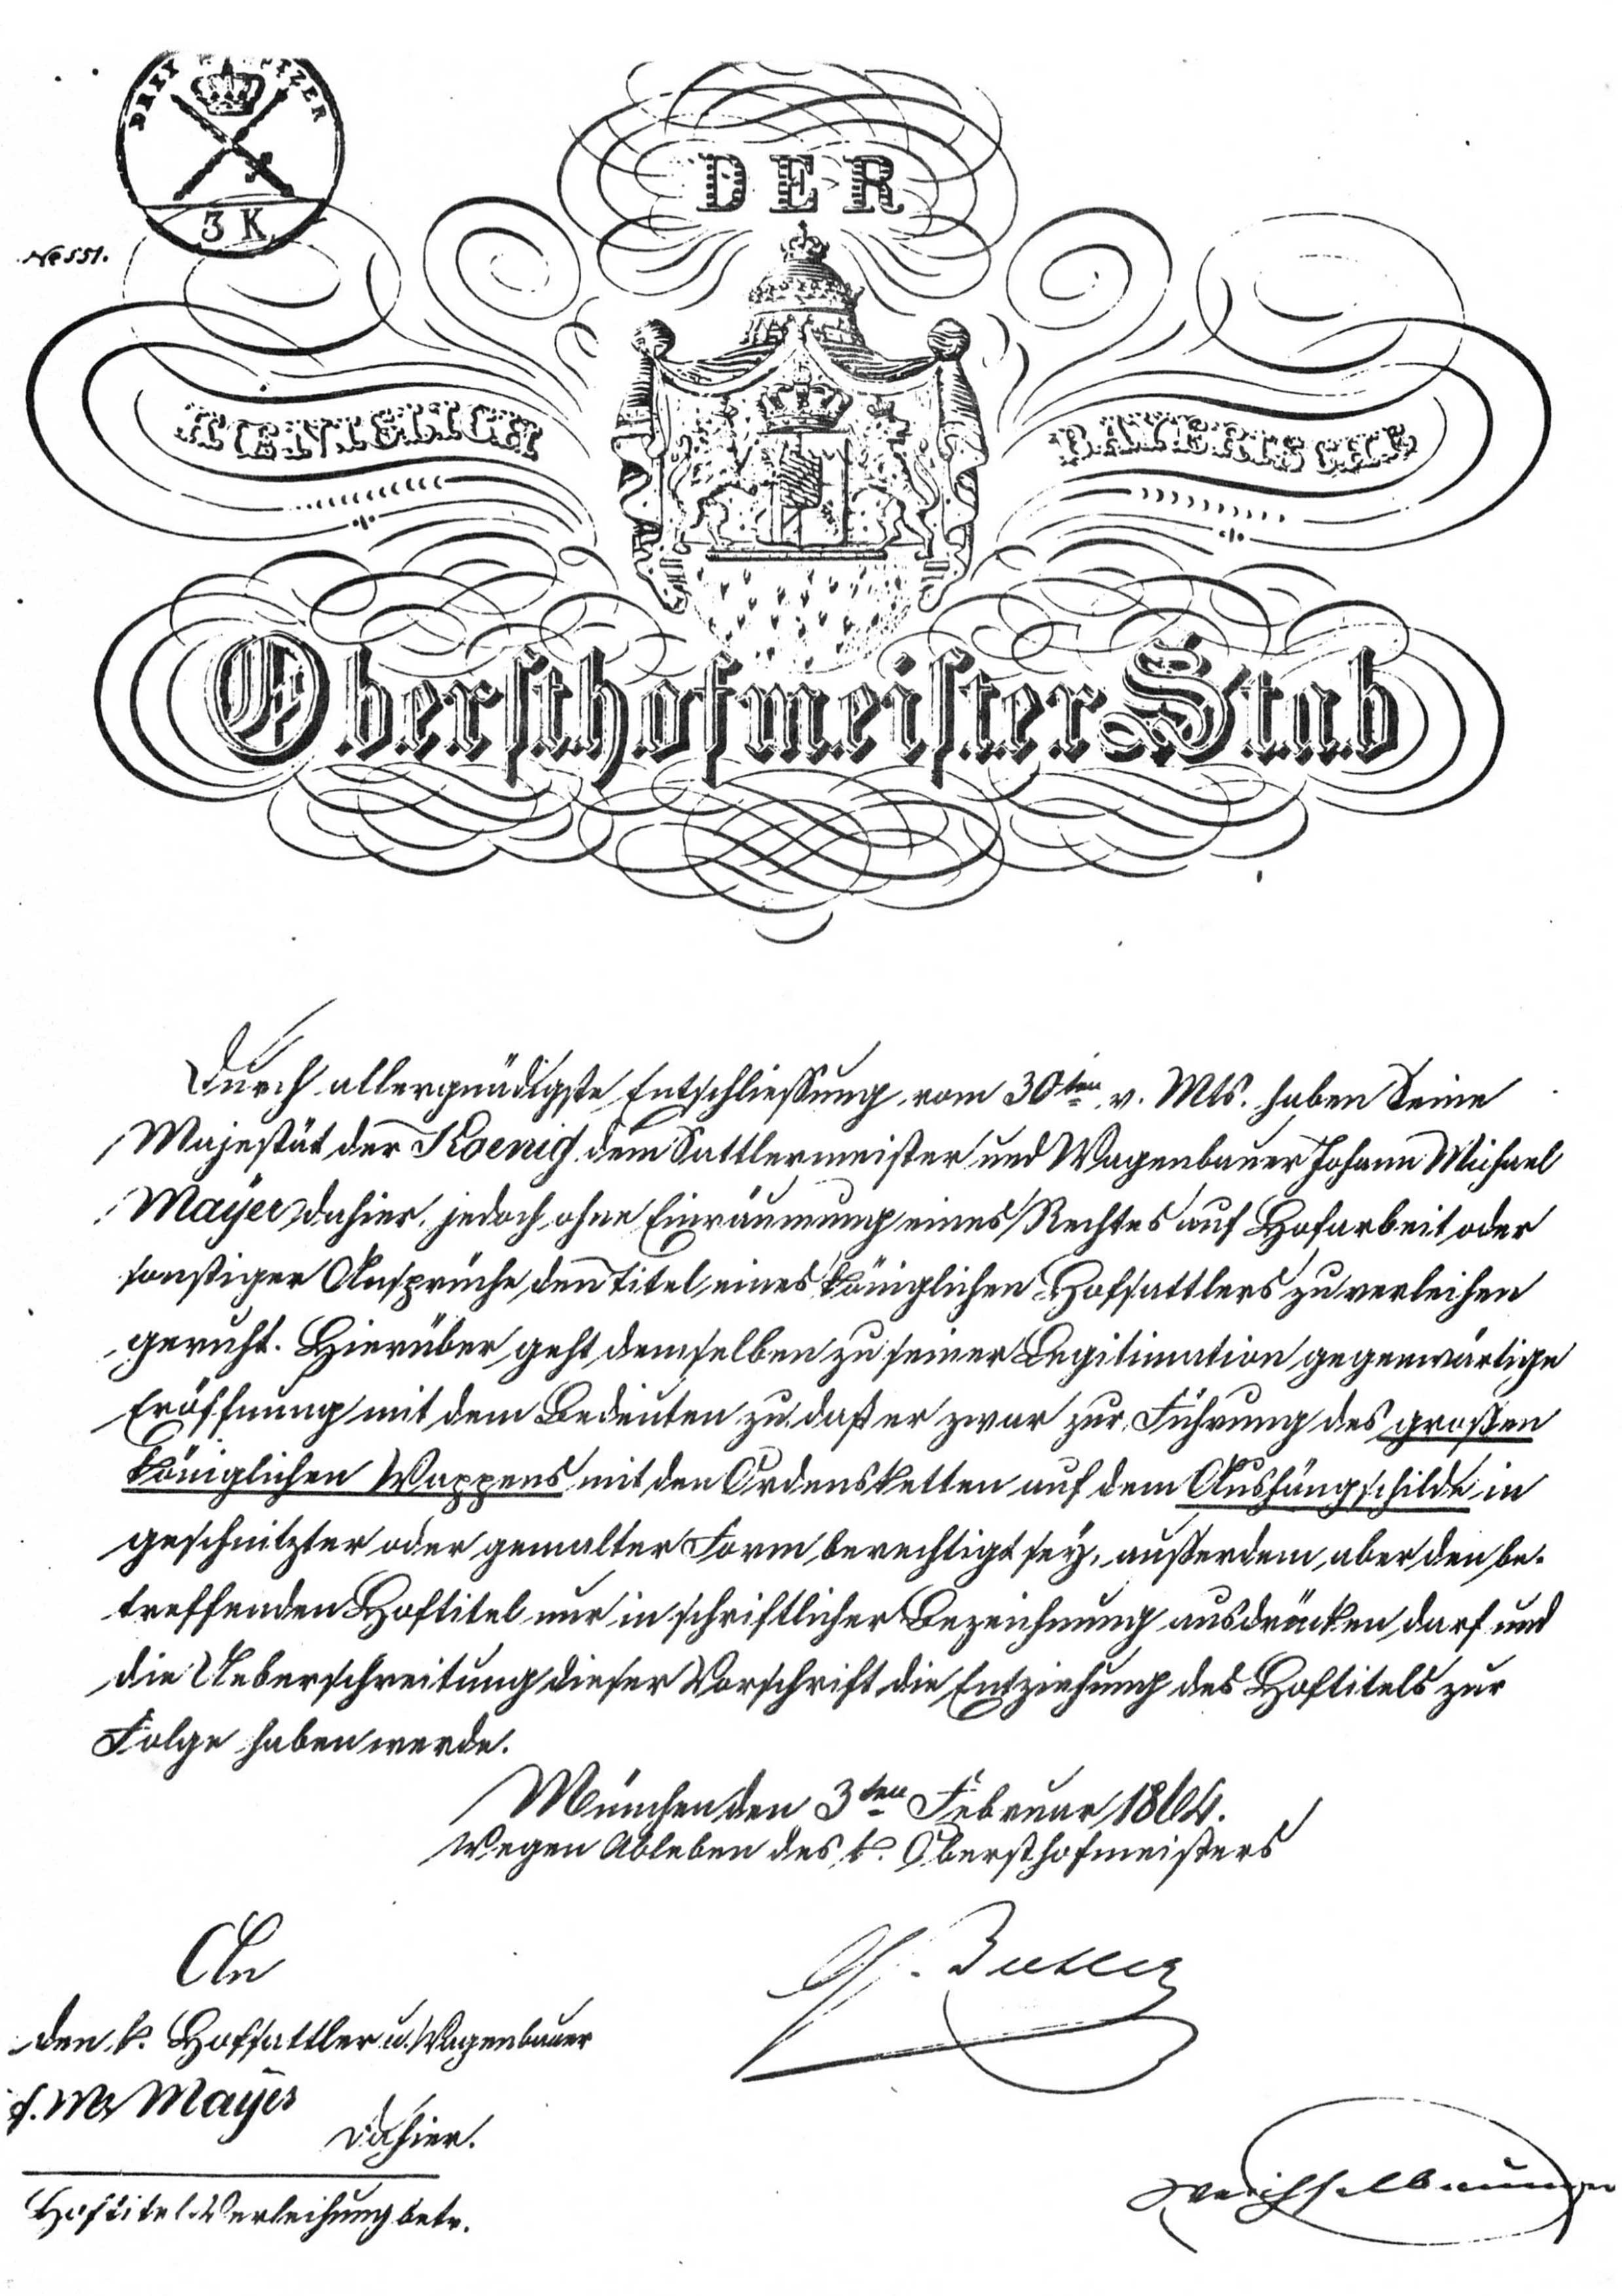 DREI KREUZER
3 K
No 551.
DER
KOENIGLICH BAYERISCHE
Obersthofmeister-Stab
Durch allergnädigste Entschliessung vom 30ten v. Mts. haben Seine
Majestät der Koenig dem Sattlermeister und Wagenbauer Johann Michael
Mayer dahier, jedoch ohne Einräumung eines Rechtes auf Hofarbeit oder
sonstiger Ansprüche den Titel eines königlichen Hofsattlers zu verleihen
geruht. Hierüber geht demselben zu seiner Legitimation gegenwärtige
Eröffnung mit dem Bedeuten zu daß er zwar zur Führung des großen
königlichen Wappens mit den Ordensketten auf dem Aushängschilde in
geschnitzter oder gemalter Form berechtigt sey, außerdem aber den be-
treffenden Hoftitel nur in schriftlicher Bezeichnung ausdrücken darf und
die Ueberschreitung dieser Vorschrift die Entziehung des Hoftitels zur
Folge haben werde.
München den 3ten Februar 1864.
Wegen Ableben des k. Obersthofmeisters
An
den k. Hofsattler u. Wagenbauer
J. M. Mayer
dahier.
Hoftitel-Verleihung betr.